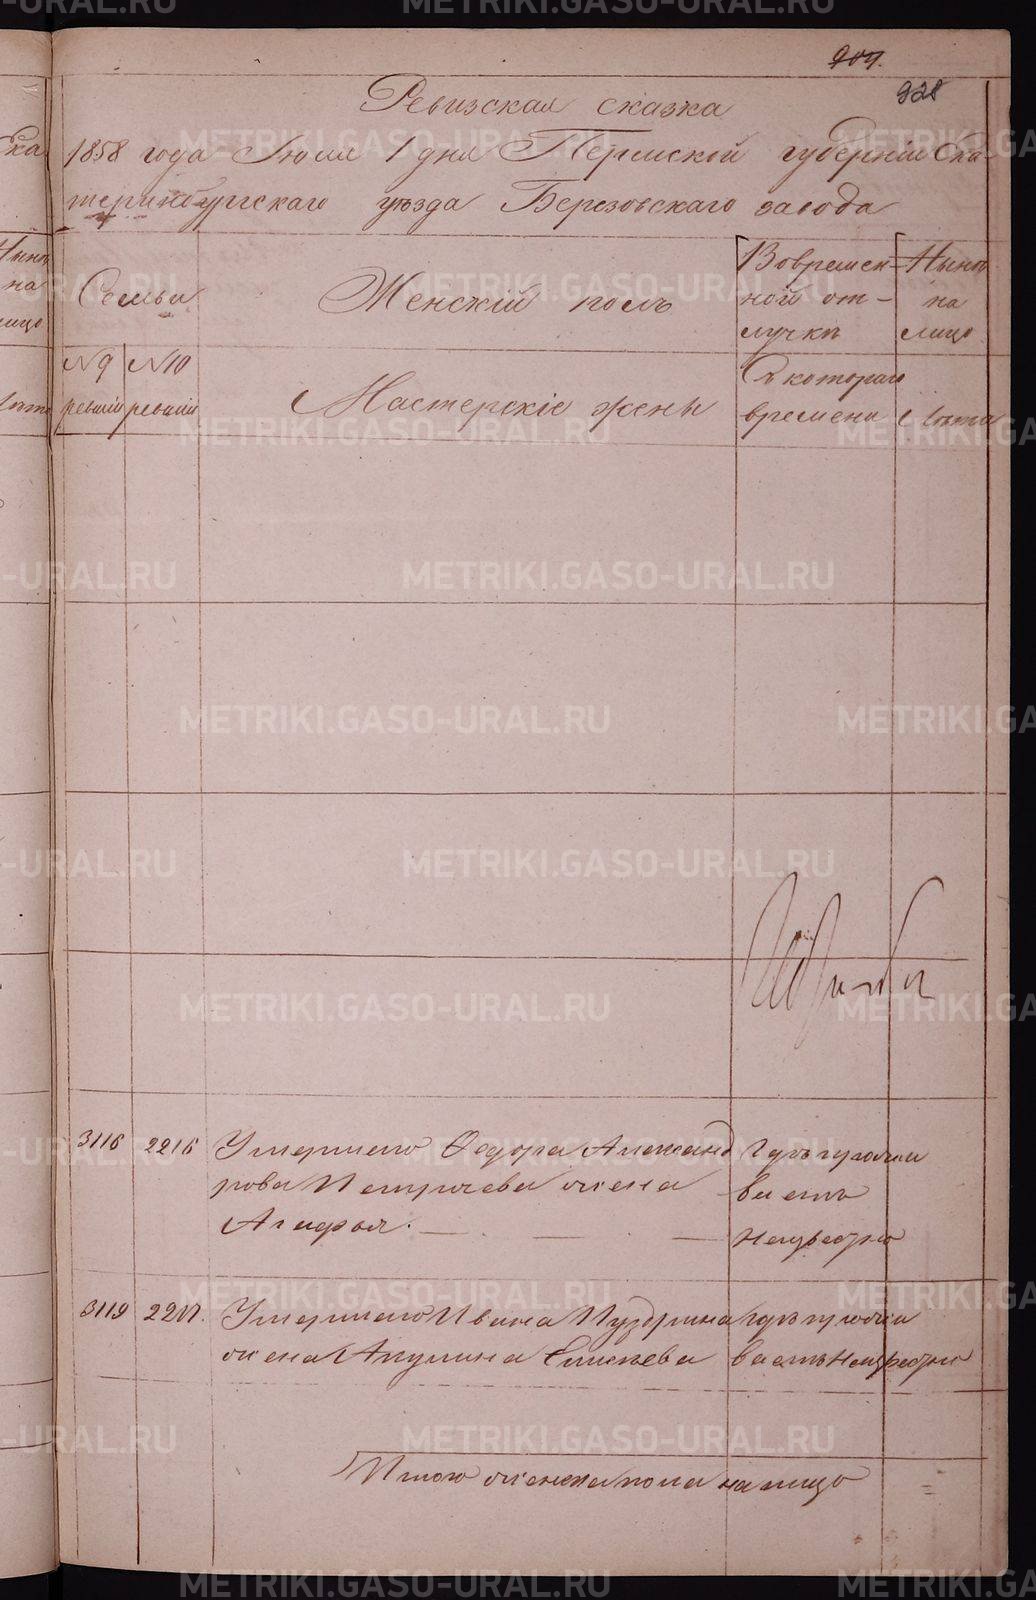 904.
928
Ревизская сказка
1858 года Июля 1 дня Пермской губернии Ека-
теринбургскаго уезда Березовскаго завода
Семьи
Женскій полъ
Во времен-
ной от-
лучкѣ
Нынѣ
на
лицо
№ 9
ревизіи
№ 10
ревизіи
Мастерскіе жены
Съ котораго
времени
Лѣта
3116 2216 Умершаго Федора Александ
рова жена
Агафья.
Гдѣ
неизвестно
3119 2217. Умершаго Ивана Пуздрина Гдѣ
жена Акулина Елисѣева
Итого женска пола на лицо =
METRIKI.GASO-URAL.RU